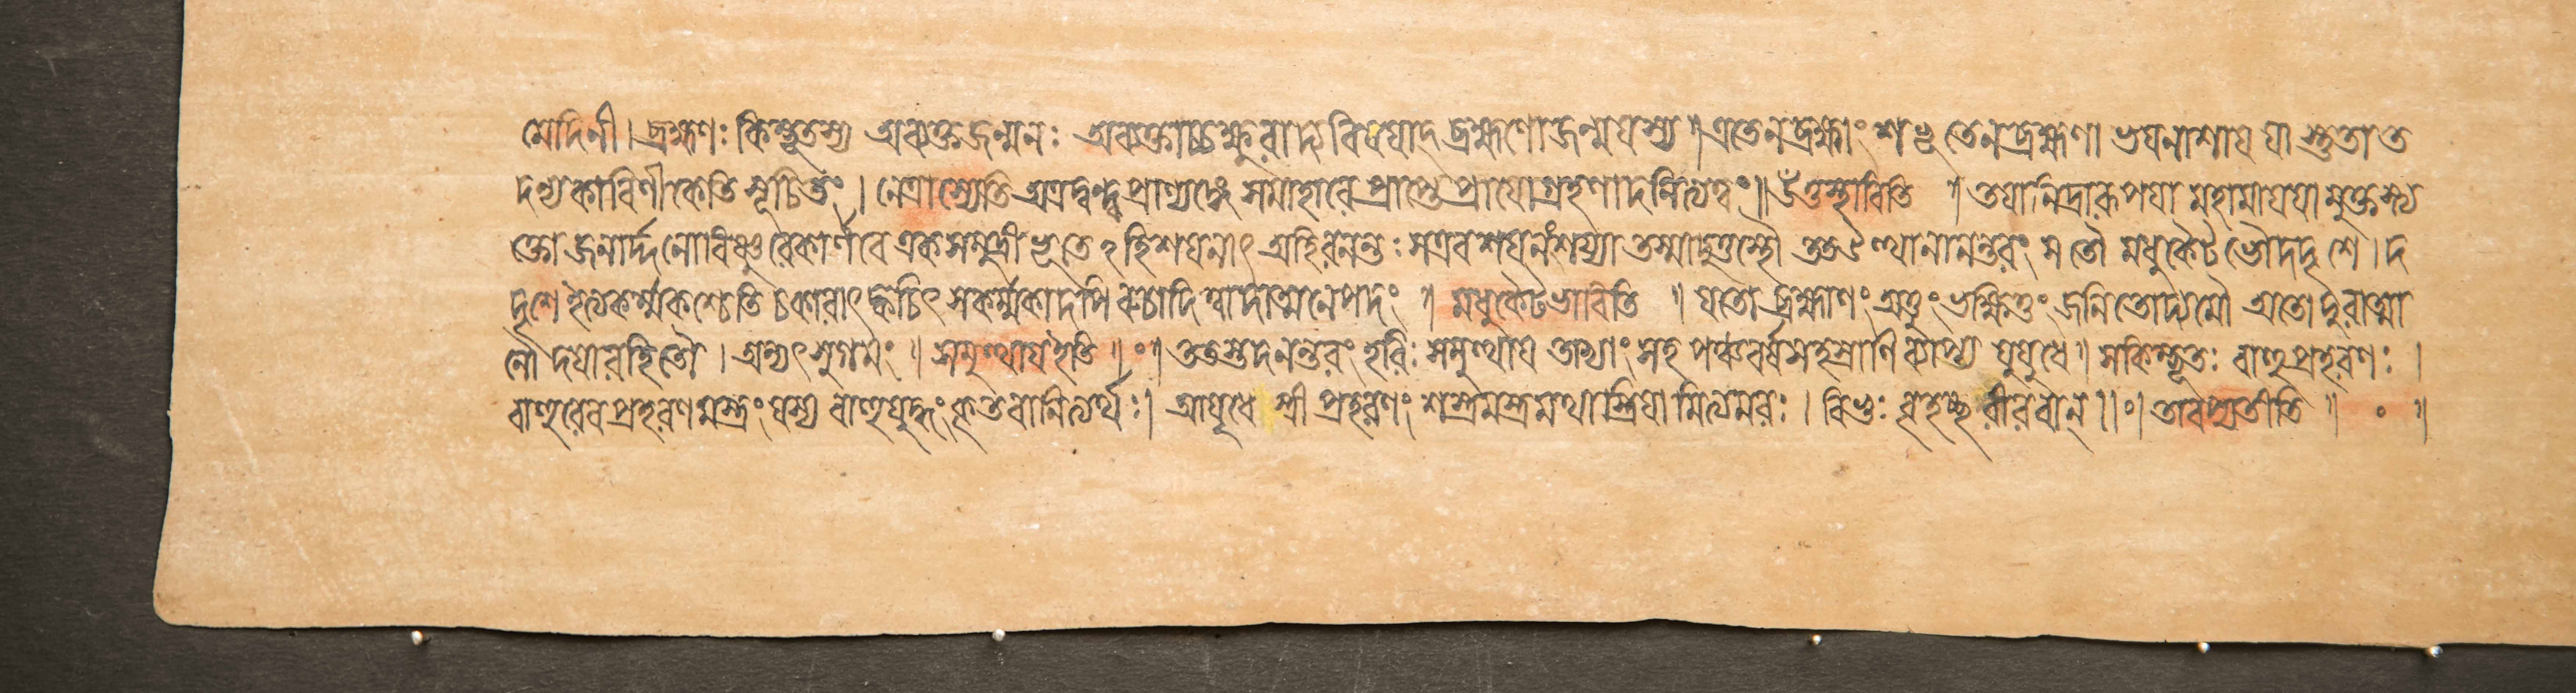 মেদিনী। ব্রহ্মণঃ কিম্ভূতস্য অব্যক্তজন্মনঃ অব্যক্তাচ্চক্ষুরাদ্যবিষয়াদ্ ব্রহ্মণো জন্ম যস্য ॥ এতেন ব্রহ্মণা ভয়নাশায় যা স্তুতা ত
দন্যকাবিণী কেতি সূচিতং । নেত্রাস্যেতি অত্র দ্বন্দ্বে প্রাণ্যঙ্গে সমাহারে প্রাপ্তে প্রায়োগ্রহণাদনিত্যত্বং ॥ উত্তস্থাবিতি ॥ তয়া নিদ্রারূপয়া মহামায়য়া মুক্তস্ত্য
ক্তো জনার্দ্দনো বিষ্ণুরেকার্ণবে একসমুদ্রীভূতে ঽহিশয়নাৎ অহিরনন্তঃ স এব শয়নং শয্যা তস্মাদুত্তস্থৌ তত উত্থানানন্তরং স তৌ মধুকৈটভৌ দদৃশে । দ
দৃশে ইত্যকর্ম্মকশ্চেতি চকারাৎ ক্বচিৎ সকর্ম্মকাদপি রুচাদিত্বাদাত্মনেপদং ॥ মধুকৈটভাবিতি ॥ যতো ব্রহ্মাণং অত্তুং ভক্ষিতুং জনিতোদ্যমৌ অতো দুরাত্মা
নৌ দয়ারহিতৌ । অন্যৎ সুগমং ॥ সমুত্থায় ইতি ॥ ০ ॥ ততস্তদনন্তরং হরিঃ সমুত্থায় তাভ্যাং সহ পঞ্চবর্ষসহস্রাণি ব্যাপ্য যুযুধে ॥ স কিম্ভূতঃ বাহুপ্রহরণঃ ।
বাহুরেব প্রহরণমস্ত্রং যস্য বাহুযুদ্ধং কৃতবানিত্যর্থঃ। আয়ুধে স্ত্রী প্রহরণং শস্ত্রমস্ত্রমথাস্ত্রিয়ামিত্যমরঃ । বিভুঃ বীর্য্যবান্ ॥০॥ তাবপ্যতীতি ॥ ০ ॥